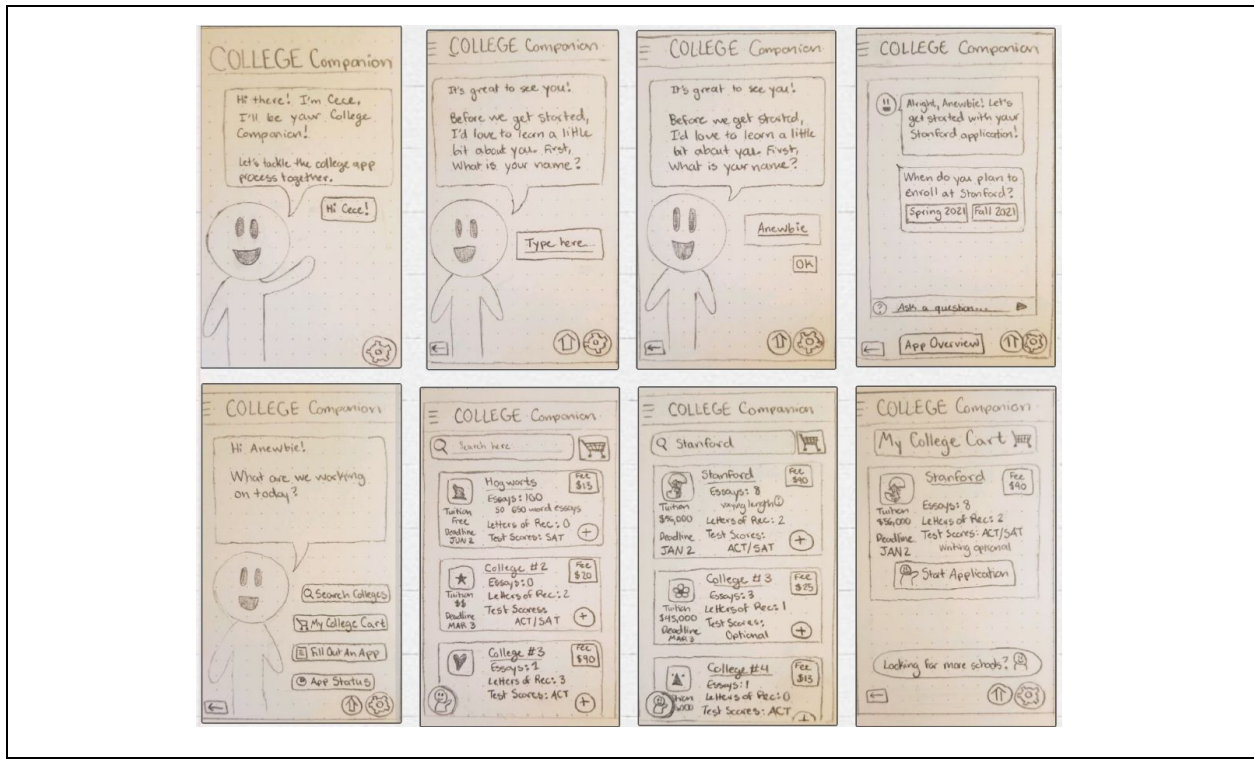 COLLEGE Companion
Hi there! I'm Cece,
I'll be your College
Companion!
Let's tackle the college app
process together.
Hi Cece!
COLLEGE Companion
It's great to see you!
Before we get started,
I'd love to learn a little
bit about you. First,
What is your name?
Type here...
COLLEGE Companion
It's great to see you!
Before we get started,
I'd love to learn a little
bit about you. First,
What is your name?
Anewbie
OK
COLLEGE Companion
Alright, Anewbie! Let's
get started with your
Stanford application!
When do you plan to
enroll at Stanford?
Spring 2021 Fall 2021
? Ask a question...
App Overview
COLLEGE Companion
Hi Anewbie!
What are we working
on today?
Search Colleges
My College Cart
Fill Out An App
App Status
COLLEGE Companion
Search here
Hogwarts
Fee
$15
Essays: 100
50 650 word essays
Tuition
Free
Letters of Rec: 0
Deadline
JUN 2
Test Scores: SAT
+
College #2
Fee
$20
Essays: 0
Tuition
$$
Letters of Rec: 2
Deadline
MAR 3
Test Scores
ACT/SAT
+
College #3
Fee
$90
Essays: 1
Letters of Rec: 3
Test Scores: ACT
+
COLLEGE Companion
Stanford
Stanford
Fee
$90
Essays: 8
varying length
Tuition
$56,000
Letters of Rec: 2
Deadline
JAN 2
Test Scores:
ACT/SAT
+
College #3
Fee
$75
Essays: 3
Tuition
$45,000
Letters of Rec: 1
Deadline
Test Scores:
Optional
+
College #4
Fee
$13
Essays: 1
Letters of Rec: 0
Test Scores: ACT
COLLEGE Companion
My College Cart
Stanford
Fee
$90
Essays: 8
Tuition
$56,000
Letters of Rec: 2
Deadline
JAN 2
Test Scores: ACT/SAT
Writing optional
Start Application
Looking for more schools?